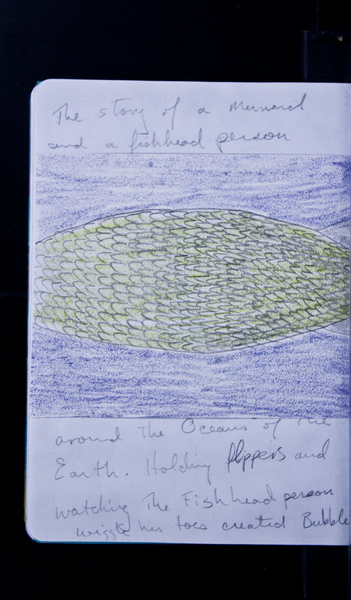 The story of a Mermard
and a fishhead person
around The Oceans of The
Earth. Holding flippers and
watching The Fishhead person
wiggle her toes created Bubble